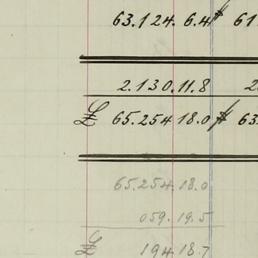 63.124.6.4 61
2.130.11.8 2
£ 65.254 18.0 63
65.254.18.0
059.19.5
£ 194.18.7